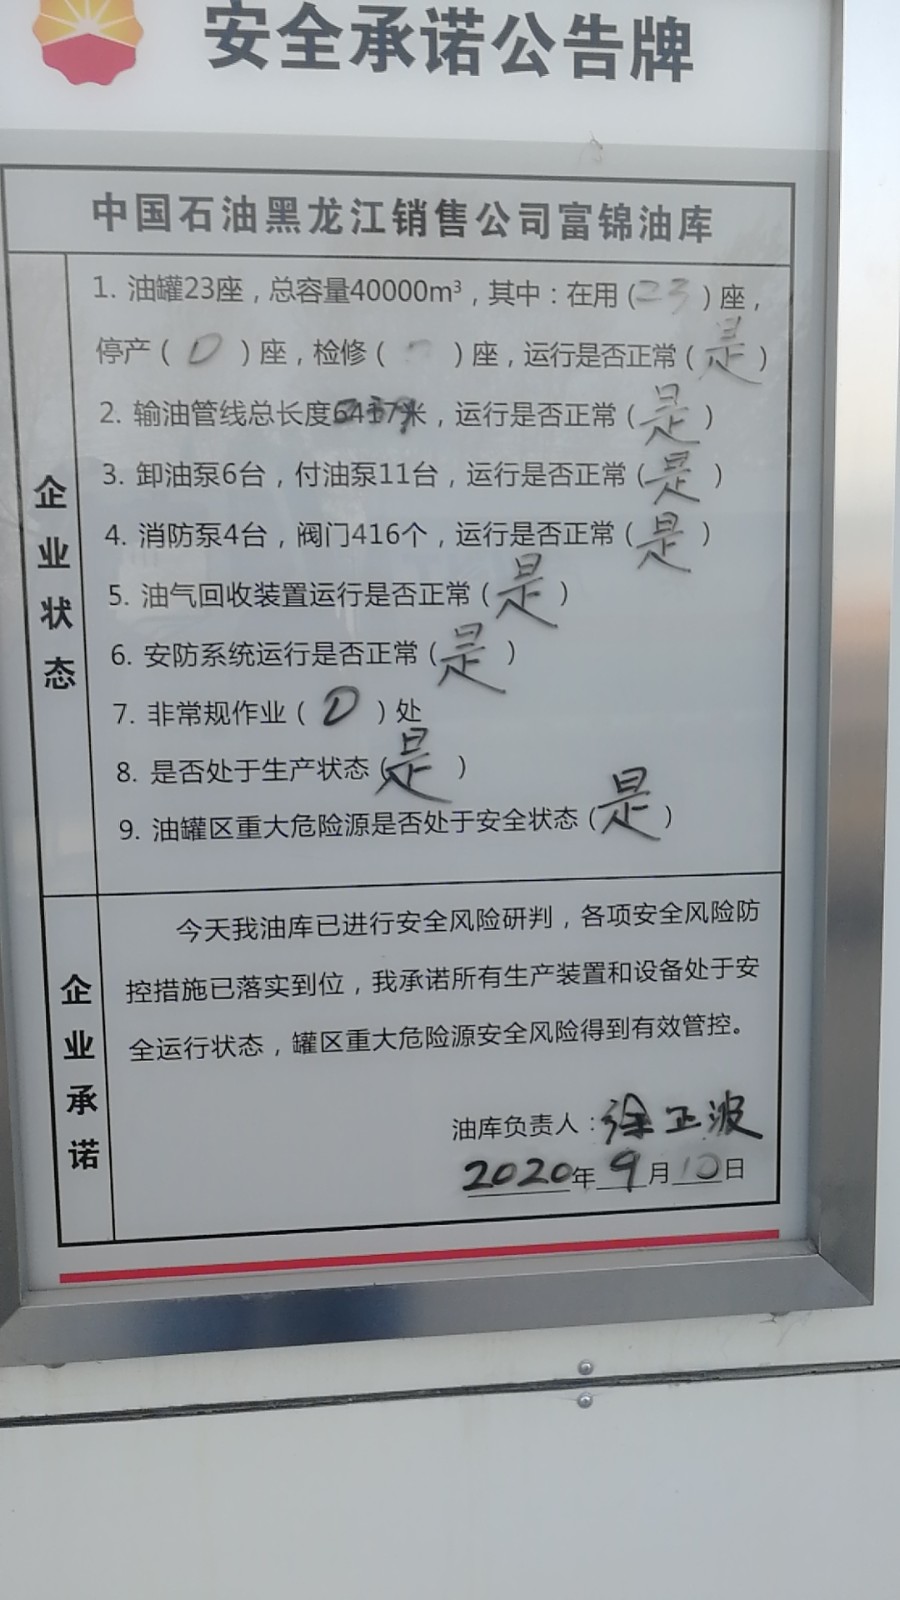 安全承诺公告牌
中国石油黑龙江销售公司富锦油库
企业状态
1. 油罐23座，总容量40000m³，其中：在用（23）座，
停产（0）座，检修（ ）座，运行是否正常（是）
2. 输油管线总长度米，运行是否正常（是）
3. 卸油泵6台，付油泵11台，运行是否正常（是）
4. 消防泵4台，阀门416个，运行是否正常（是）
5. 油气回收装置运行是否正常（是）
6. 安防系统运行是否正常（是）
7. 非常规作业（0）处
8. 是否处于生产状态（是）
9. 油罐区重大危险源是否处于安全状态（是）
企业承诺
今天我油库已进行安全风险研判，各项安全风险防
控措施已落实到位，我承诺所有生产装置和设备处于安
全运行状态，罐区重大危险源安全风险得到有效管控。
油库负责人：徐正波
2020年9月10日